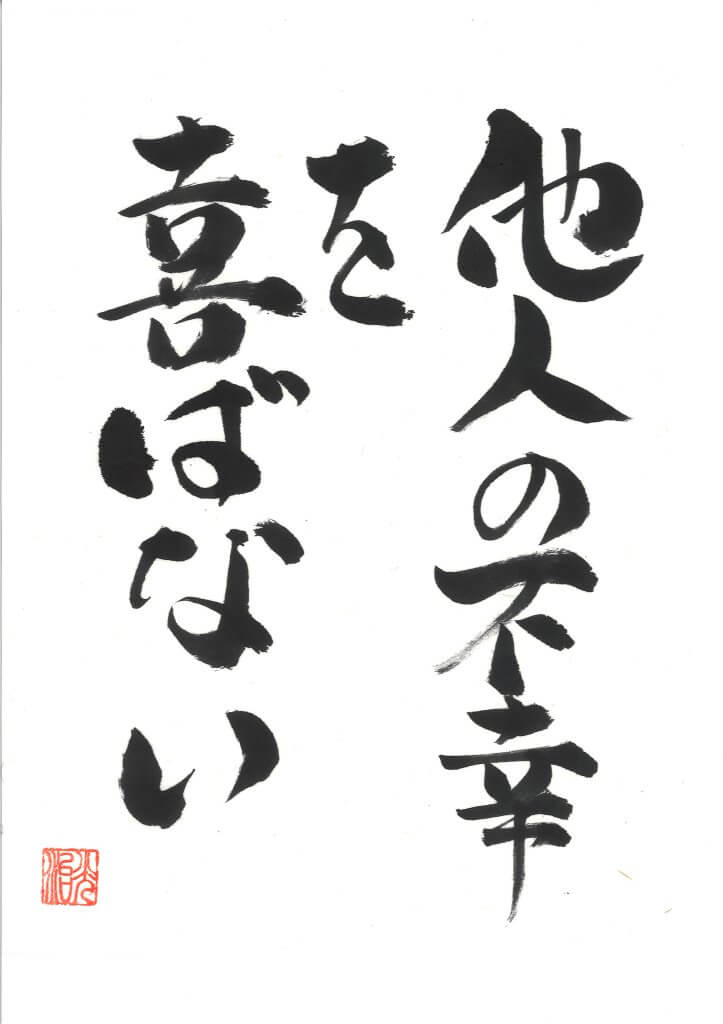 他人の不幸
を
喜ばない